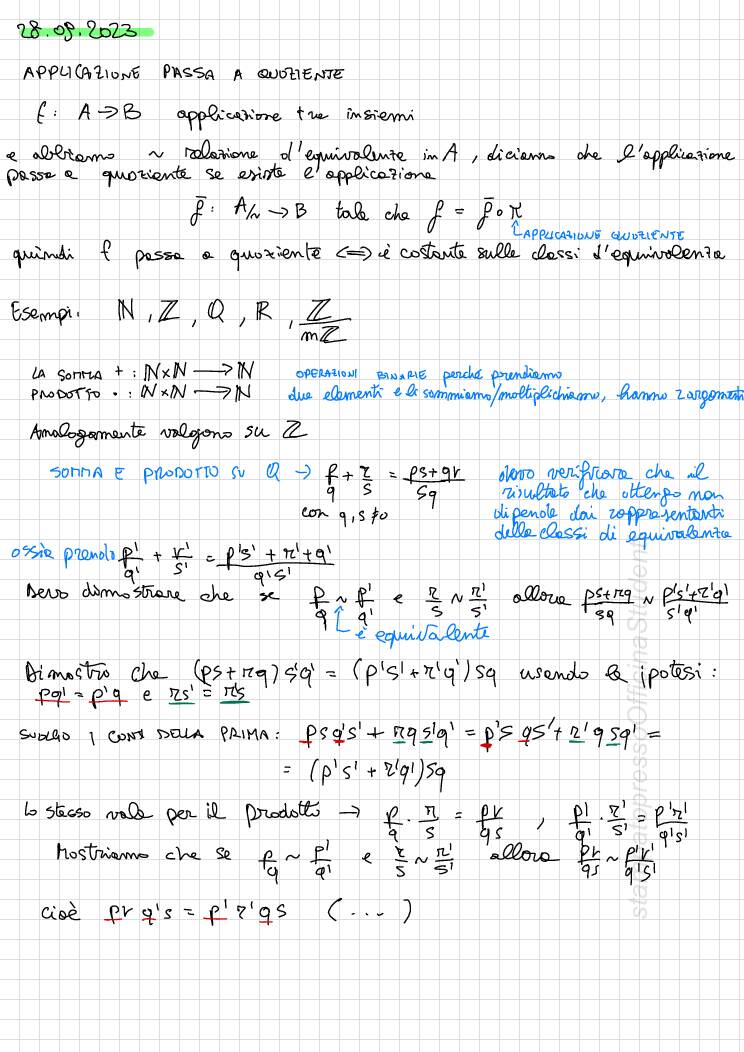 28.09.2023
APPLICAZIONE PASSA A QUOZIENTE
f: A → B applicazione tra insiemi
e abbiamo ~ relazione d'equivalenza in A, diciamo che l'applicazione
passa a quoziente se esiste l'applicazione
f̄: A/~ → B tale che f = f̄ ∘ π
APPLICAZIONE QUOZIENTE
quindi f passa a quoziente ⟺ è costante sulle classi d'equivalenza
Esempi. ℕ, ℤ, ℚ, ℝ, ℤ/mℤ
LA SOMMA + : ℕ×ℕ → ℕ OPERAZIONI BINARIE perché prendiamo
PRODOTTO • : ℕ×ℕ → ℕ due elementi e li sommiamo/moltiplichiamo, hanno 2 argomenti
Analogamente valgono su ℤ
SOMMA E PRODOTTO SU ℚ → p/q + r/s = (ps+qr)/sq devo verificare che il
con q,s≠0 risultato che ottengo non
dipende dai rappresentanti
delle classi di equivalenza
ossia prendo p'/q' + r'/s' = (p's' + r' + q')/q's'
Devo dimostrare che se p/q ~ p'/q' e r/s ~ r'/s' allora (ps+rq)/sq ~ (p's'+r'q')/s'q'
è equivalente
Dimostro che (ps+rq)s'q' = (p's'+r'q')sq usando le ipotesi:
pq' = p'q e rs' = r's
SVOLGO I CONTI DELLA PRIMA: psq's' + rqs'q' = p's qs' + r'qsq' =
= (p's' + r'q')sq
Lo stesso vale per il prodotto → p/q · r/s = pr/qs , p'/q' · r'/s' = p'r'/q's'
Mostriamo che se p/q ~ p'/q' e r/s ~ r'/s' allora pr/qs ~ p'r'/q's'
cioè pr q's = p'r'qs (...)